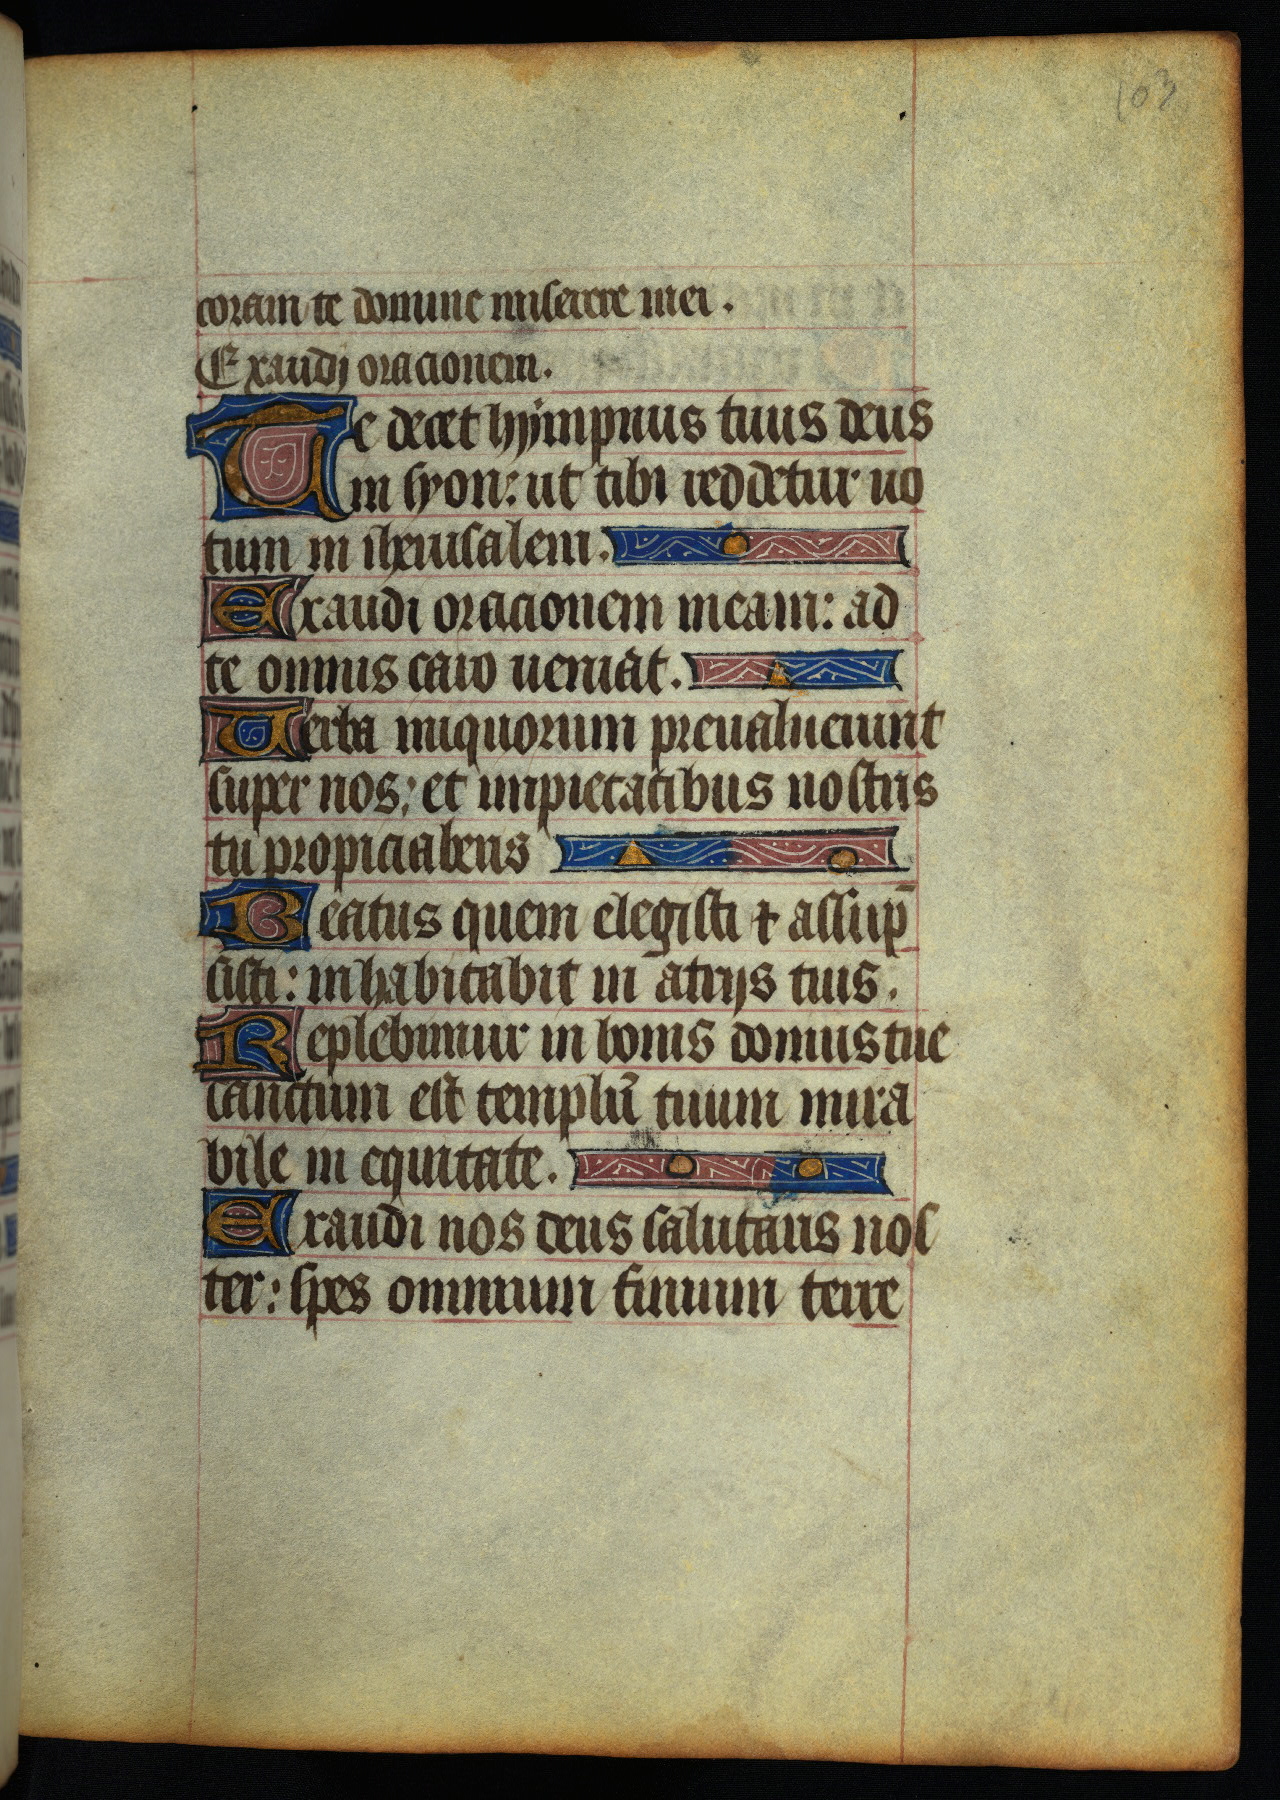 103
coram te domine miserere mei.
Exaudj oracionem.
Te decet hympnus tuus deus
in syon: ut tibi reddetur uo
tum in iherusalem.
Exaudi oracionem meam: ad
te omnis caro ueniat.
Uerba iniquorum preualuerunt
super nos: et impietatibus nostris
tu propiciaberis
Beatus quem elegisti ⁊ assūp
sisti: inhabitabit in atrijs tuis.
Replebimur in bonis domus tue
sanctum est templū tuum mira
bile in equitate.
Exaudi nos deus salutaris nos
ter: spes omnium finium terre